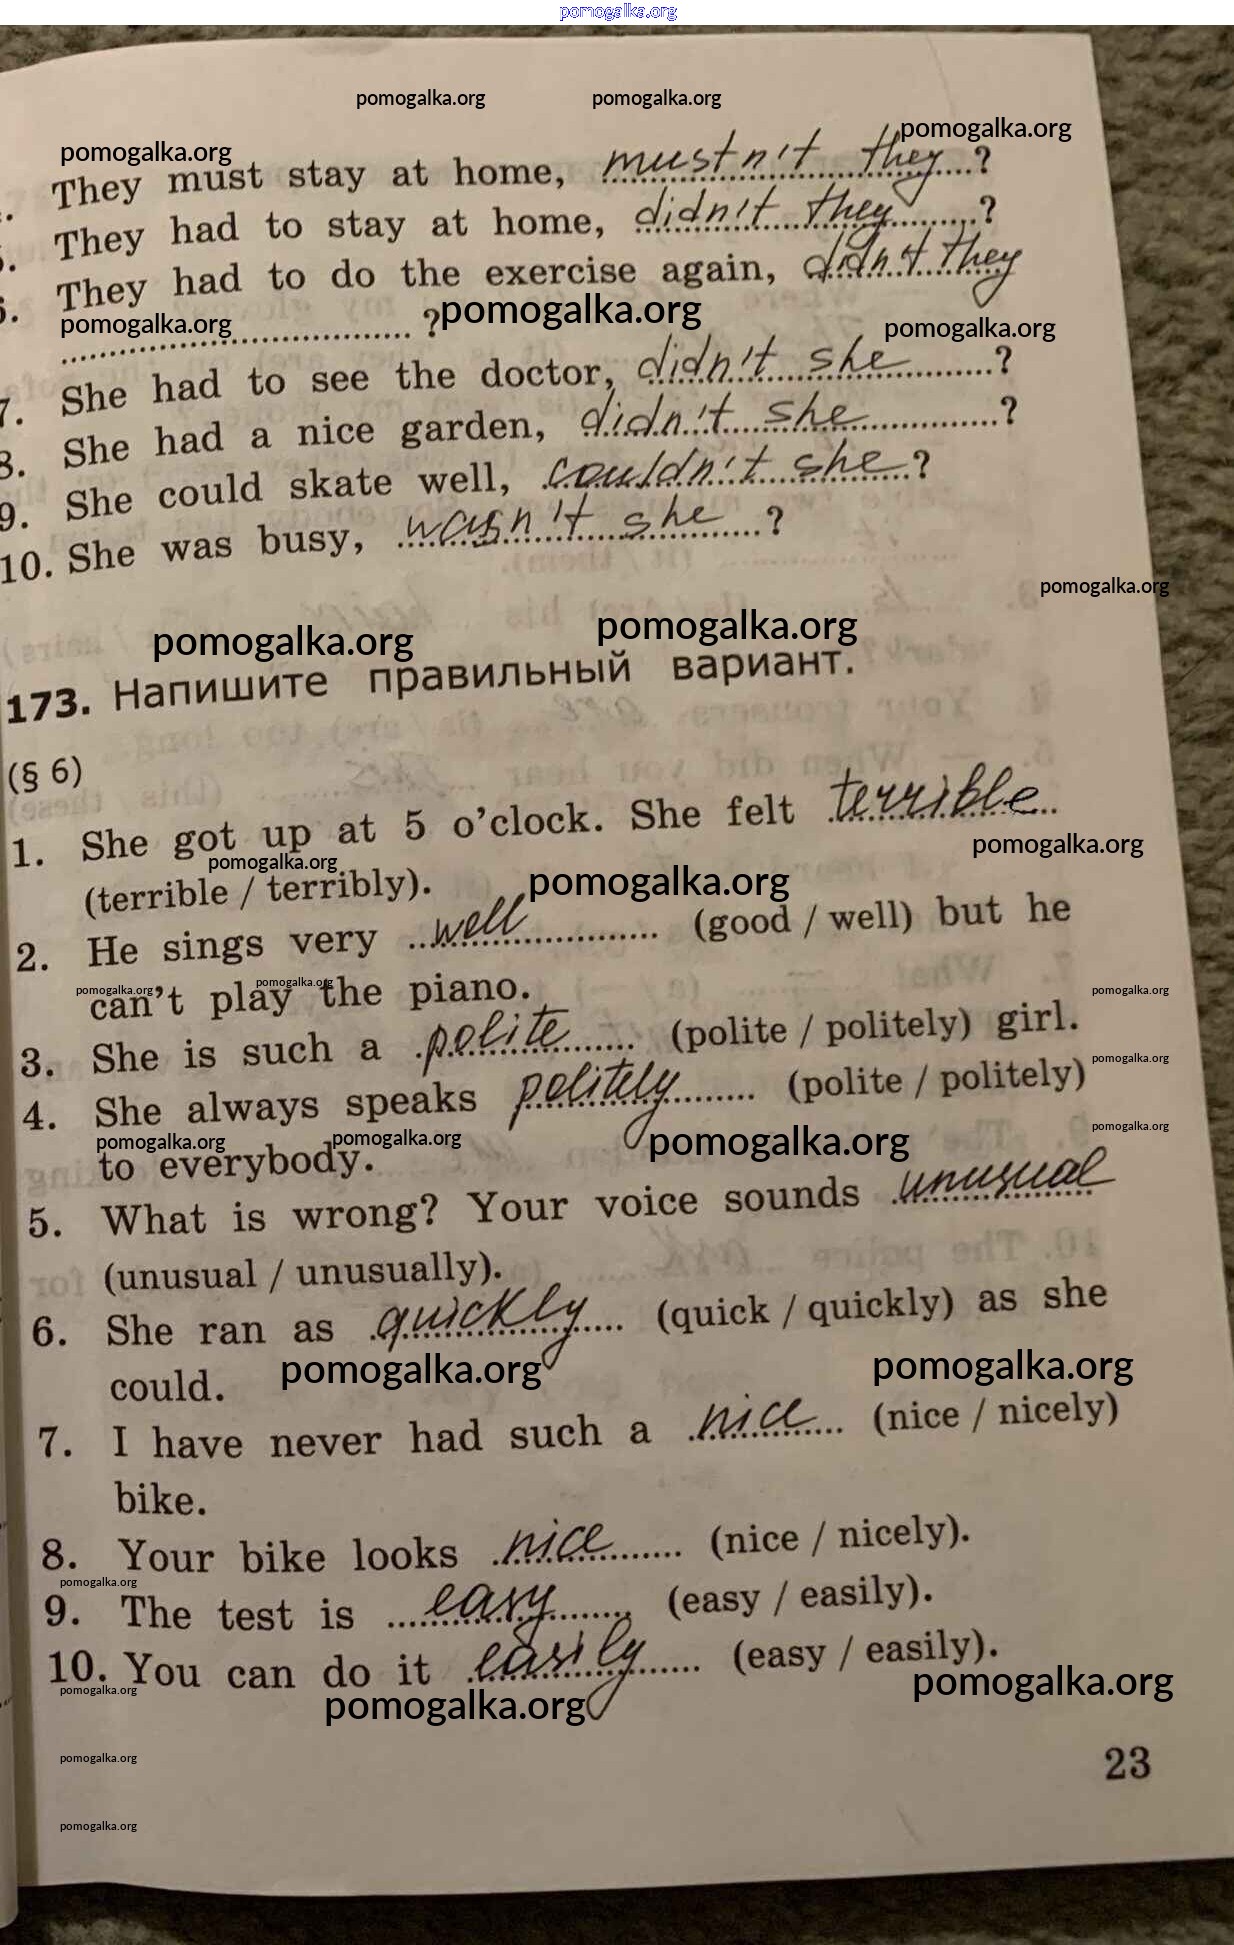 pomogalka.org
pomogalka.org pomogalka.org
pomogalka.org pomogalka.org
They must stay at home, mustn't they ?
They had to stay at home, didn't they ?
6. They had to do the exercise again, didn't they
pomogalka.org ? pomogalka.org pomogalka.org
7. She had to see the doctor, didn't she ?
8. She had a nice garden, didn't she ?
9. She could skate well, couldn't she ?
10. She was busy, wasn't she ?
pomogalka.org
pomogalka.org pomogalka.org
173. Напишите правильный вариант.
(§ 6)
1. She got up at 5 o'clock. She felt terrible
pomogalka.org pomogalka.org pomogalka.org
(terrible / terribly).
2. He sings very well (good / well) but he
can't play the piano.
pomogalka.org pomogalka.org pomogalka.org
3. She is such a polite (polite / politely) girl.
4. She always speaks politely (polite / politely)
pomogalka.org
pomogalka.org
pomogalka.org pomogalka.org pomogalka.org
to everybody.
5. What is wrong? Your voice sounds unusual
(unusual / unusually).
6. She ran as quickly (quick / quickly) as she
could.
pomogalka.org pomogalka.org
7. I have never had such a nice (nice / nicely)
bike.
8. Your bike looks nice (nice / nicely).
pomogalka.org
9. The test is easy (easy / easily).
10. You can do it easily (easy / easily).
pomogalka.org pomogalka.org pomogalka.org
pomogalka.org
23
pomogalka.org